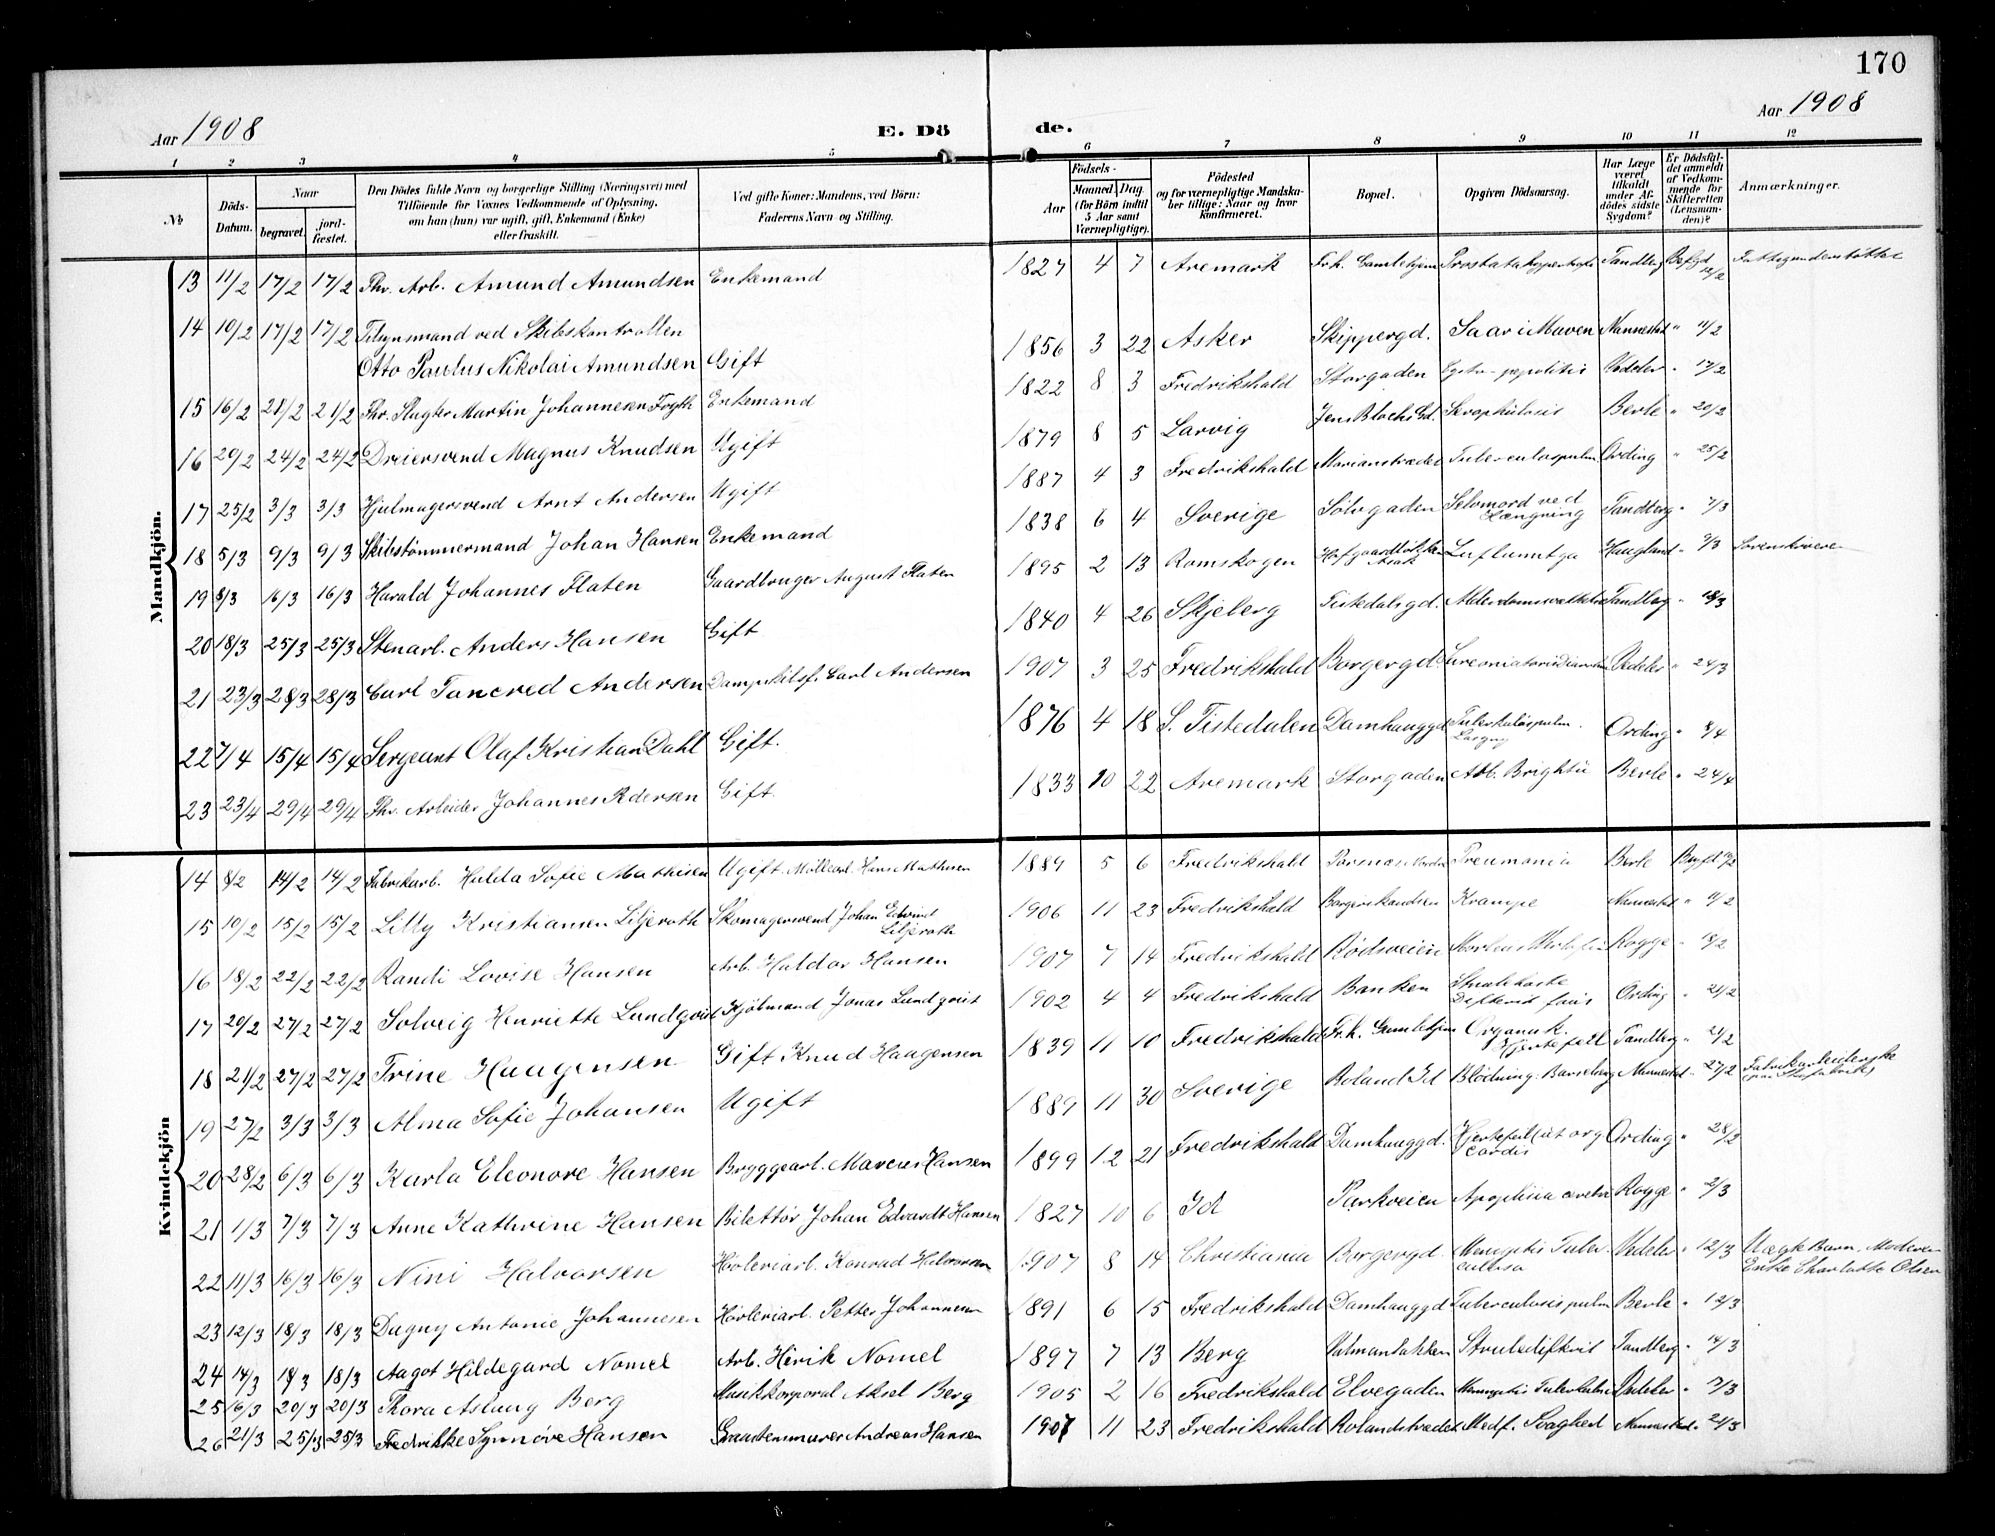 170
Aar 1908
E. Dö de.
Aar 1908
1 2 3 4 5 6 7 8 9 10 11 12
№
Döds-Datum.
Naar
begravet.
jord-fæstet.
Den Dödes fulde Navn og borgerlige Stilling (Næringsvei) med
Tilföiende for Voxnes Vedkommende af Oplysning,
om han (hun) var ugift, gift, Enkemand (Enke)
eller fraskilt.
Ved gifte Koner: Mandens, ved Börn:
Faderens Navn og Stilling.
Födsels-
Aar
Maaned. Dag.
(for Börn indtil
5 Aar samt
Værnepligtige).
Födested
og for værnepligtige Mandska-
ber tillige: Naar og hvor
konfirmeret.
Bopæl.
Opgiven Dödsaarsag.
Har Læge
været
tilkaldt
under Af-
dödes sidste
Sygdom?
Er Dödsfal-
det anmeldt
af Vedkom-
mende for
Skifteretten
(Lensman-
den)?
Anmærkninger.
Mandkjön.
13 11/2 17/2 17/2 Fhv. Arb. Amund Amundsen Enkemand 1827 4 7 Aremark Frh. Gamlehjem Tandberg
14 10/2 17/2 17/2 Tilsynsmand ved Skibskontrollen
Otto Paulus Nikolai Amundsen Gift 1856 3 22 Asker Skippergd. Saar i Maven Nannestad " 11/2
15 16/2 21/2 21/2 Fhv. Slagter Martin Johannesen Enkemand 1822 8 3 Fredrikshald Storgaden Vedeler " 17/2
16 20/2 24/2 24/2 Dreiersvend Magnus Knudsen Ugift 1879 8 5 Larvig Jens Blochs Gd. Berle " 20/2
17 25/2 3/3 3/3 Hjulmagersvend Arnt Andersen Ugift 1887 4 3 Fredrikshald Marianstrædet Ording " 25/2
18 5/3 9/3 9/3 Skibstömmermand Johan Hansen Enkemand 1838 6 4 Sverige Sölvgaden Selvmord ved Hængning Tandberg " 7/3
19 8/3 16/3 16/3 Harald Johannes Flaten Gaardbruger August Flaten 1895 2 13 Romskogen Haugland " 9/3
20 18/3 25/3 25/3 Stenarb. Anders Hansen Gift 1840 4 26 Skjeberg Tistedalsgd. Tandberg " 18/3
21 23/3 28/3 28/3 Carl Tancred Andersen Carl Andersen 1907 3 25 Fredrikshald Borgergd Vedeler " 24/3
22 7/4 15/4 15/4 Sergeant Olaf Kristian Dahl Gift. 1876 4 18 S. Tistedalen Damhauggd Ording " 8/4
23 23/4 29/4 29/4 Fhv. Arbeider Johannes Gift. 1833 10 22 Aremark Storgaden Berle " 24/4
Kvindekjön
14 8/2 14/2 14/2 Fabrikarb. Hulda Sofie Mathisen Ugift. Möllearb. Hans Mathisen 1889 5 6 Fredrikshald Berle
15 10/2 15/2 15/2 Lilly Kristiansen Liljeroth Skomagersvend Johan Edvind Liljeroth 1906 11 23 Fredrikshald Krampe Nannestad "
16 18/2 22/2 22/2 Randi Lovise Hansen Arb. Haldor Hansen 1907 7 14 Fredrikshald Rödsveien Rogge " 18/2
17 20/2 27/2 27/2 Solveig Henriette Lundqvist Kjölmand Jonas Lundqvist 1902 4 4 Fredrikshald Banken Ording " 21/2
18 21/2 27/2 27/2 Trine Haagensen Gift Knud Haagensen 1839 11 10 Fredrikshald Fr.h. Gamlehjem Organisk. Hjertefeil Tandberg " 21/2
19 27/2 3/3 3/3 Alma Sofie Johansen Ugift 1889 11 30 Sverige Blödning. Nannestad " 27/2
20 28/2 6/3 6/3 Karla Eleonore Hansen Bryggearb. Marcus Hansen 1899 12 21 Fredrikshald Damhauggd. Ording " 28/2
21 1/3 7/3 7/3 Anne Kathrine Hansen Bilettör Johan Edvardt Hansen 1827 10 6 Id Parkveien Rogge " 2/3
22 11/3 16/3 16/3 Nini Halvorsen Hövleriarb. Konrad Halvorsen 1907 8 14 Christiania Borgergd. Vedeler " 12/3 Uægte Barn. Moderen
Enke Charlotte Olsen
23 12/3 18/3 18/3 Dagny Antonie Johannesen Hövleriarb. Petter Johannesen 1891 6 15 Fredrikshald Damhauggd Tuberculosis pulm Berle " 12/3
24 14/3 18/3 18/3 Aagot Hildegard Nomel Arb. Henrik Nomel 1897 7 13 Berg Strubedifterit Tandberg " 14/3
25 16/3 20/3 20/3 Thora Aslaug Berg Musikkorporal Aksel Berg 1905 2 16 Fredrikshald Elvegaden Vedeler "
26 21/3 25/3 25/3 Fredrikke Synnöve Hansen Graastensmurer Andreas Hansen 1907 11 23 Fredrikshald Rolandstrædet Medf. Svaghed Nannestad " 21/3